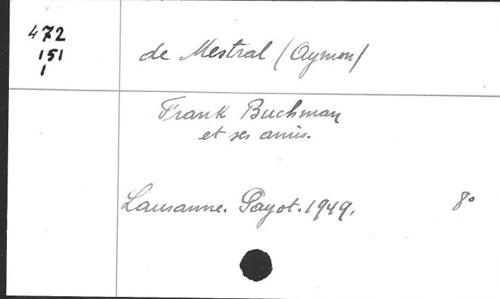 472
151
1
de Mestral (Aymon)
Frank Buchman
et ses amis.
Lausanne. Payot. 1949. 8°